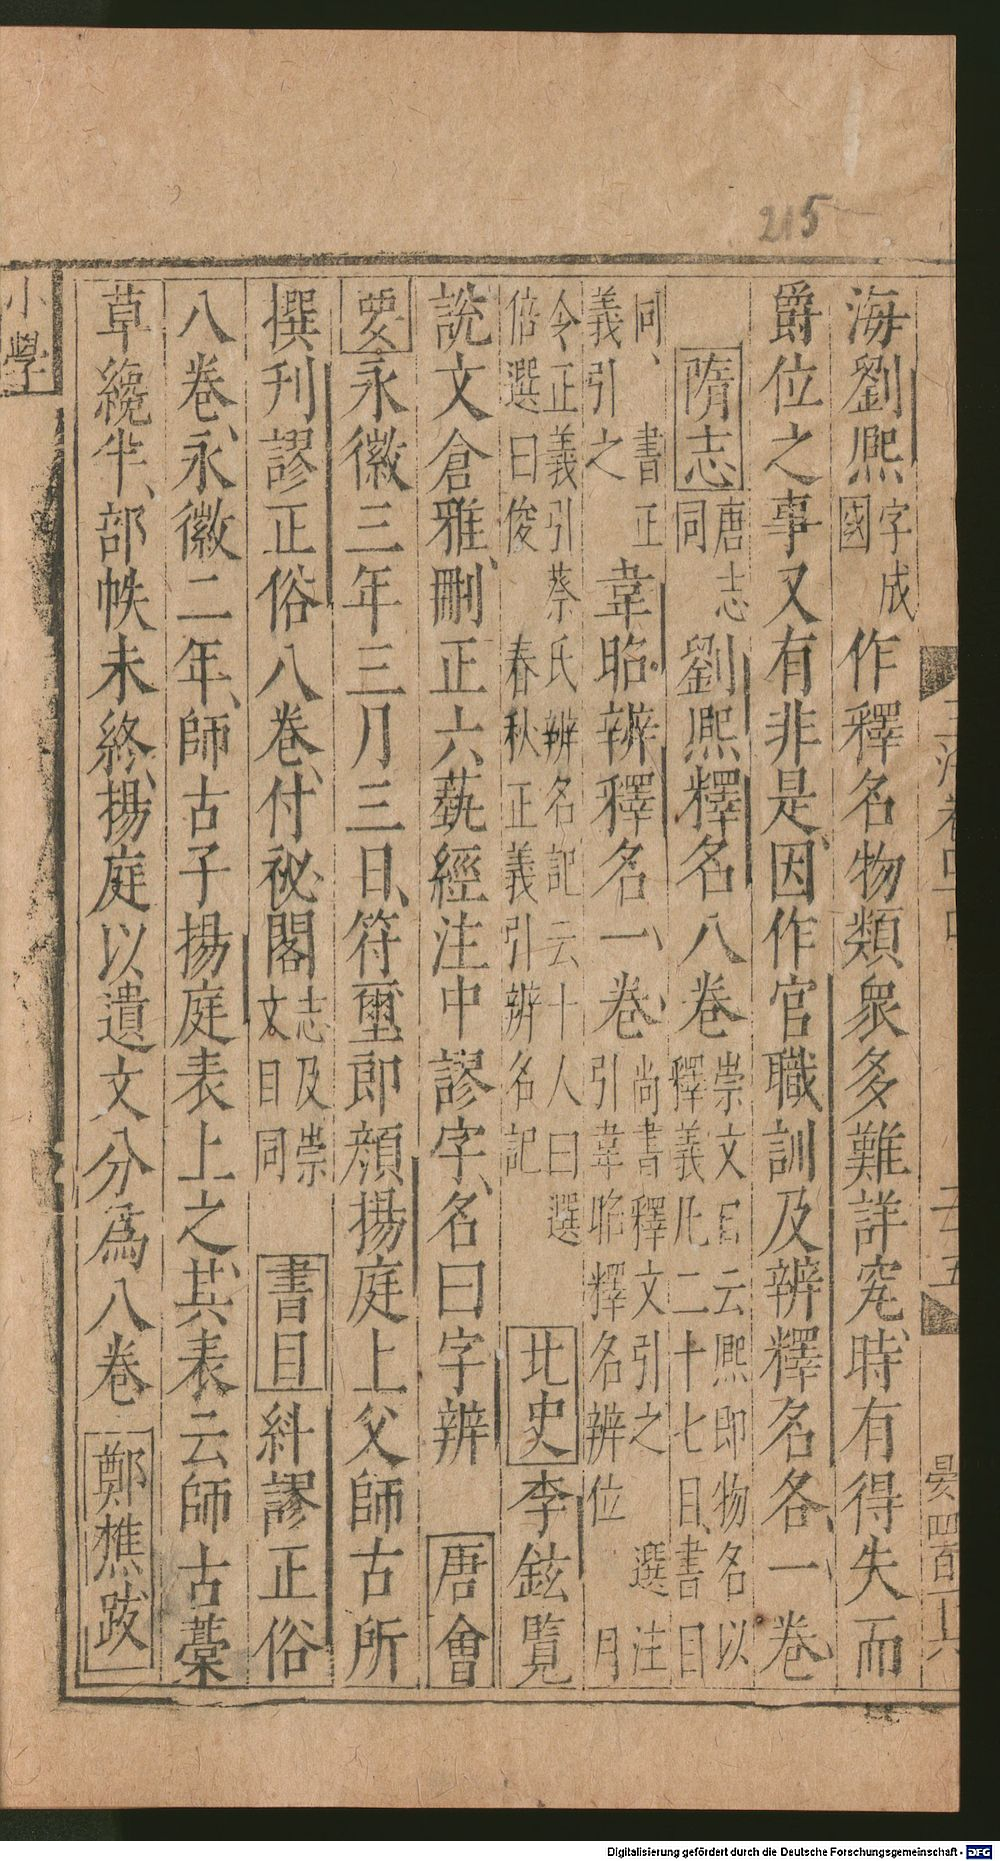 215
海劉熙字成國作釋名物類衆多難詳究時有得失而
爵位之事又有非是因作官職訓及辨釋名各一卷
隋志唐志同劉熙釋名八卷崇文目云熙即物名以釋義凡二十七目書目
同書正義引之韋昭辨釋名一卷尚書釋文引之選注引韋昭釋名辨位月
今正義引蔡氏辨名記云十人曰選倍選曰俊春秋正義引辨名記北史李鉉覽
說文倉雅刪正六藝經注中謬字名曰字辨唐會
要永徽三年三月三日符璽郎顏揚庭上父師古所
撰刊謬正俗八卷付祕閣志及崇文目同書目糾謬正俗
八卷永徽二年師古子揚庭表上之其表云師古藁
草纔半部帙未終揚庭以遺文分為八卷鄭樵跋
小學
Digitalisierung gefördert durch die Deutsche Forschungsgemeinschaft - DFG